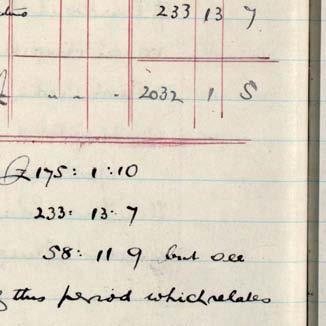 233 13 7
2032 1 5
175: 1: 10
233: 13: 7
58: 11 9 but see
this period which relates